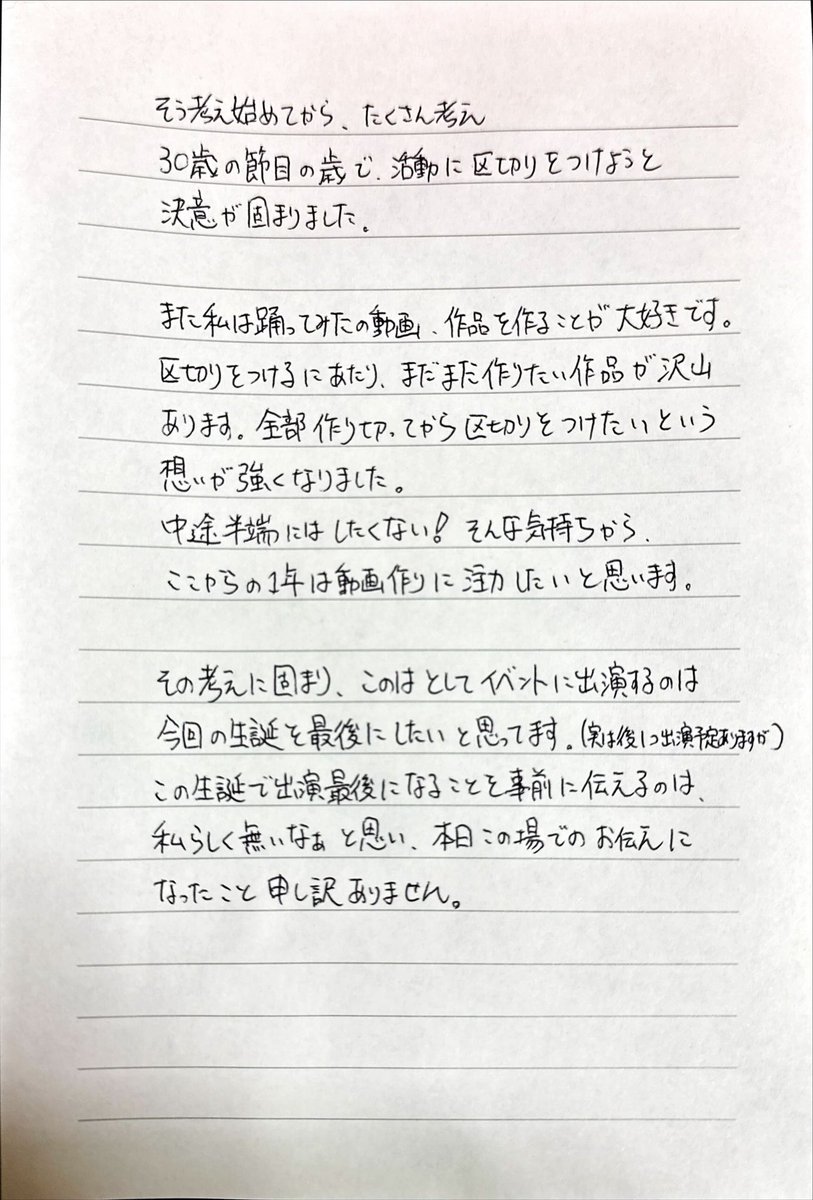 そう考え始めてから、たくさん考え
30歳の節目の歳で、活動に区切りをつけようと
決意が固まりました。
また私は踊ってみたの動画、作品を作ることが大好きです。
区切りをつけるにあたり、まだまだ作りたい作品が沢山
あります。全部作り切ってから区切りをつけたいという
想いが強くなりました。
中途半端にはしたくない!そんな気持ちから、
ここからの1年は動画作りに注力したいと思います。
その考えに固まり、このはとしてイベントに出演するのは
今回の生誕を最後にしたいと思ってます。(実は後1つ出演予定ありますが)
この生誕で出演最後になることを事前に伝えるのは、
私らしく無いなぁと思い、本日この場でのお伝えに
なったこと申し訳ありません。